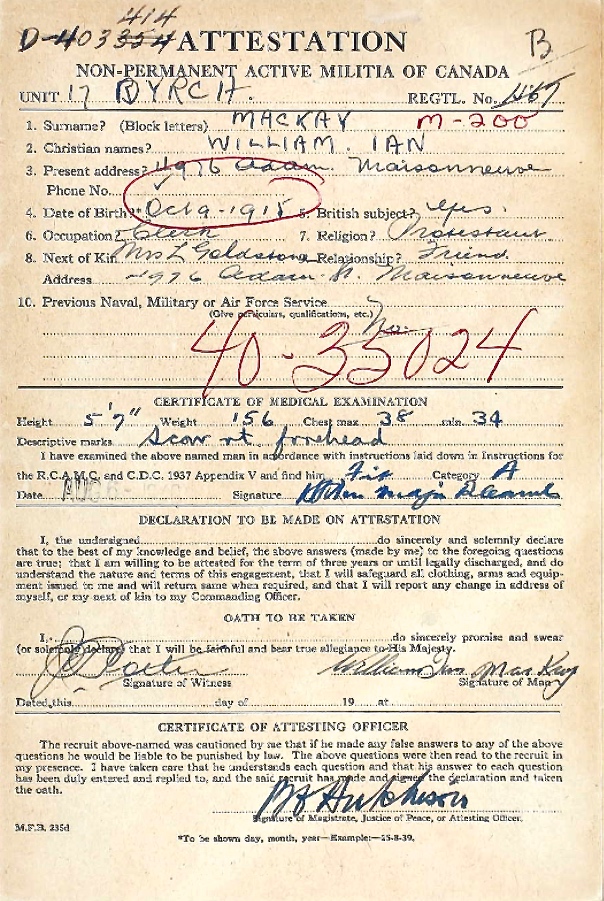 414
D-403354 ATTESTATION B
NON-PERMANENT ACTIVE MILITIA OF CANADA
UNIT 17 DYRCH. REGTL. No. 467
1. Surname? (Block letters) MACKAY M-200
2. Christian names? WILLIAM. IAN
3. Present address? 4976 Adam. Maisonneuve
Phone No.
4. Date of Birth? Oct 9-1918 5. British subject? Yes.
6. Occupation? Clerk 7. Religion? Protestant
8. Next of Kin Mrs L Goldstone Relationship? Friend.
Address 4976 Adam St. Maisonneuve
10. Previous Naval, Military or Air Force Service
(Give particulars, qualifications, etc.)
No.
40-35024
CERTIFICATE OF MEDICAL EXAMINATION
Height 5'7" Weight 156 Chest max 38 min. 34
Descriptive marks Scar rt. forehead
I have examined the above named man in accordance with instructions laid down in Instructions for
the R.C.A.M.C. and C.D.C. 1937 Appendix V and find him Fit Category A
Date AUG 6 Signature
DECLARATION TO BE MADE ON ATTESTATION
I, the undersigned do sincerely and solemnly declare
that to the best of my knowledge and belief, the above answers (made by me) to the foregoing questions
are true; that I am willing to be attested for the term of three years or until legally discharged, and do
understand the nature and terms of this engagement, that I will safeguard all clothing, arms and equip-
ment issued to me and will return same when required, and that I will report any change in address of
myself, or my next of kin to my Commanding Officer.
OATH TO BE TAKEN
I, do sincerely promise and swear
(or solemnly declare) that I will be faithful and bear true allegiance to His Majesty.
William Ian MacKay
Signature of Witness Signature of Man
Dated this day of 19 at
CERTIFICATE OF ATTESTING OFFICER
The recruit above-named was cautioned by me that if he made any false answers to any of the above
questions he would be liable to be punished by law. The above questions were then read to the recruit in
my presence. I have taken care that he understands each question and that his answer to each question
has been duly entered and replied to, and the said recruit has made and signed the declaration and taken
the oath.
Hutchison
Signature of Magistrate, Justice of Peace, or Attesting Officer.
M.F.B. 235d
*To be shown day, month, year—Example:—15-8-39.